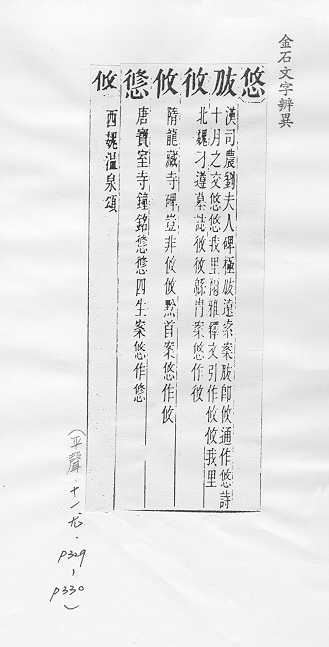 金石文字辨異
悠
漢司農劉夫人碑極遠索案即攸通作悠詩
十月之交悠悠我里爾雅釋文引作攸攸我里
北魏刁遵墓誌緜冑案悠作
攸
隋龍藏寺碑豈非攸攸黔首案悠作攸
唐寶室寺鐘銘四生案悠作
攸
西魏溫泉頌
(平聲·十一尤·P329, P330)